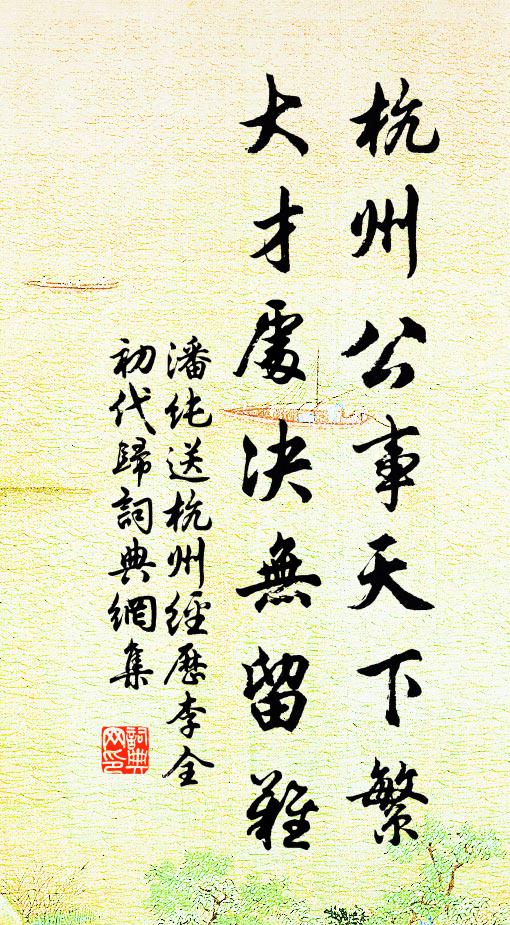 杭州公事天下繁
大才處決無留難
潘純送杭州經歷李全
初代歸詞典網集
詞典
网印